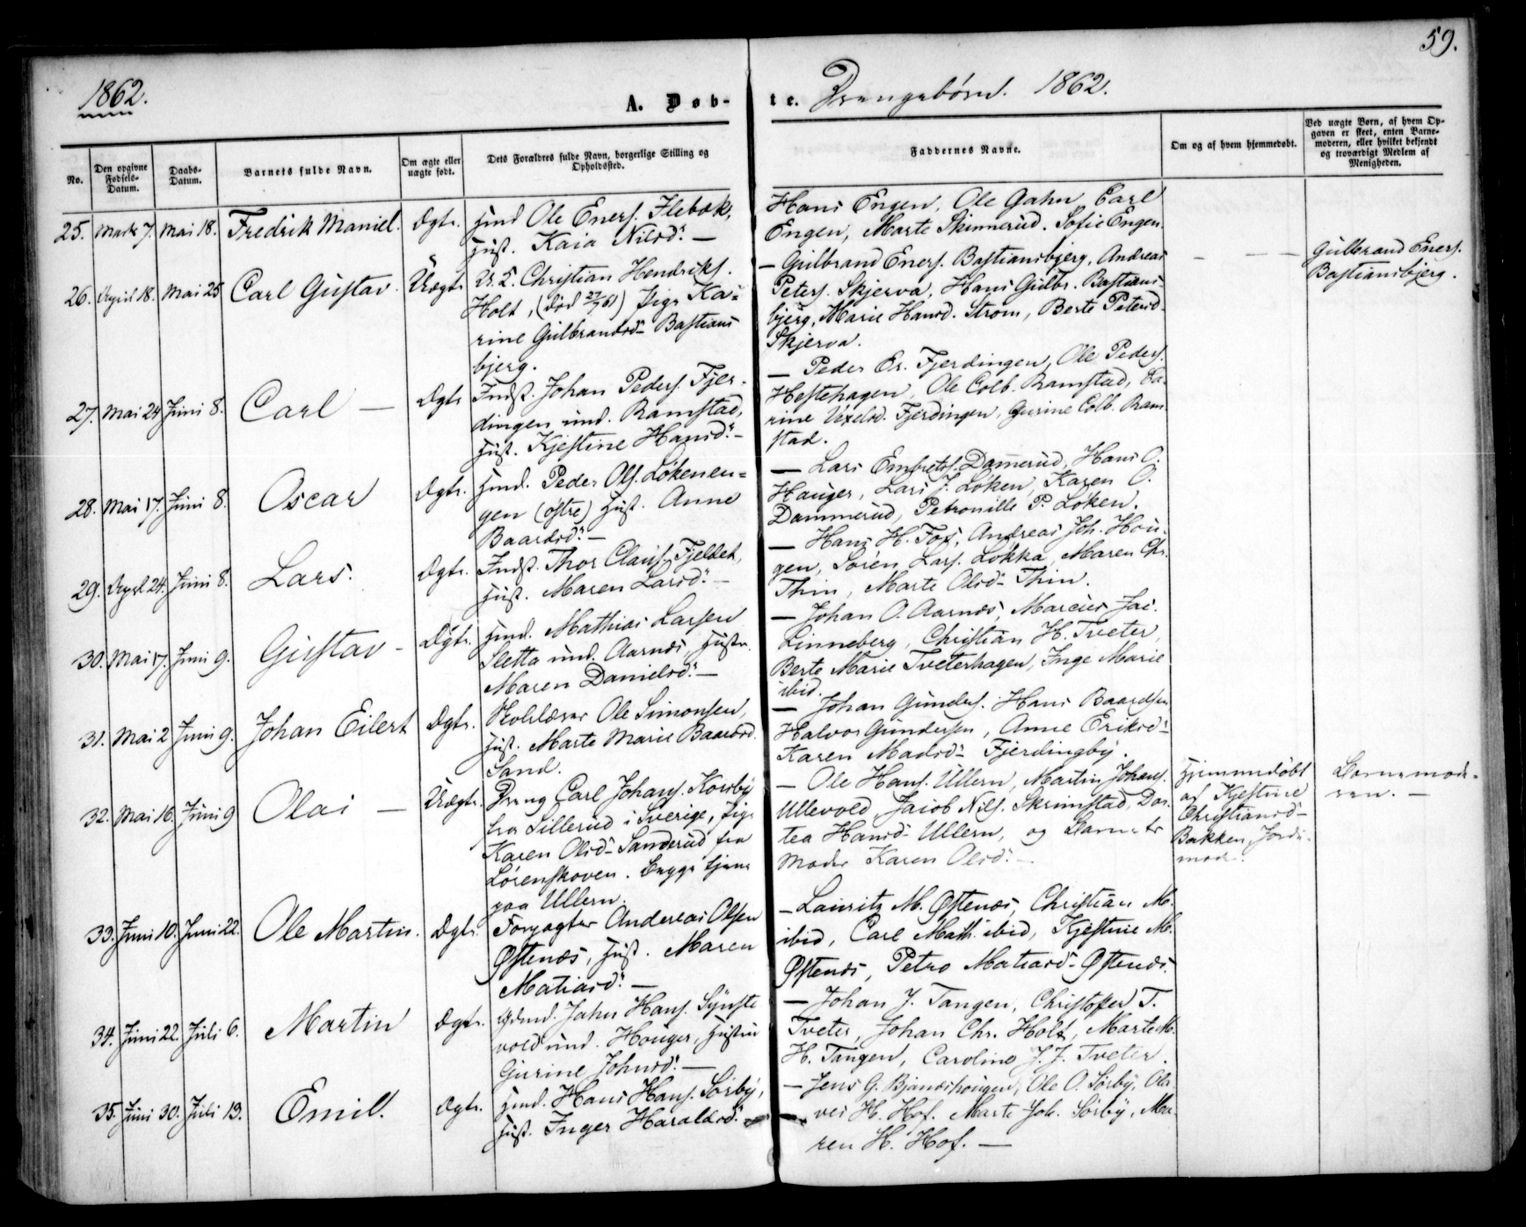 59.
1862.
A. Døb-
te. Drengebørn. 1862.
No.
Den opgivne Fødsels-Datum.
Daabs-Datum.
Barnets fulde Navn.
Om ægte eller uægte født.
Dets Forældres fulde Navn, borgerlige Stilling og Opholdssted.
Faddernes Navne.
Om og af hvem hjemmedøbt.
Ved uægte Børn, af hvem Opgaven er skeet, enten Barnemoderen, eller hvilket bekjendt og troværdigt Medlem af Menigheden.
25. Marts 7. Mai 18. Fredrik Maniel. Ægte.
Hmd Ole Eners. Ilebæk,
Hust. Kaia Nilsd. —
Hans Engen, Ole Gahn, Carl
Engen, Marte Skinnerud. Sofie Engen.
26. April 18. Mai 25 Carl Gustav. Uægt.
Christian Hendriks.
Holt, (død) Pige Ka-
rine Gulbrandsd. Bastians
bjerg.
— Gulbrand Eners. Bastiansbjerg, Andreas
Peters. Skjerva, Hans Gulbr. Bastians-
bjerg, Marie Hansd. Strøm, Berte Petersd.
Skjerva.
Gulbrand Eners.
Bastiansbjerg.
27. Mai 24 Juni 8. Carl — Ægte
Indst. Johan Peders. Fjer-
dingen und. Ramstad,
Hust. Kjestine Hansd. —
— Peder Er. Fjerdingen, Ole Peders.
Hestehagen, Ole Colb. Ramstad, Ka-
rine Fjerdingen, Gurine Colb. Ram
stad.
28. Mai 17. Juni 8. Oscar Ægte.
Hmd. Peder Ols. Løkenen-
gen (østre) Hust. Anne
Baardsd. —
— Lars Embrets. Dammerud, Hans O.
Hauger, Lars J. Løken, Karen O.
Dammerud, Petronille P. Løken.
29. April 24. Juni 8. Lars. Ægte.
Indst. Thor Claus. Fjeldet,
Hust. Maren Larsd. —
— Hans H. Fos, Andreas Joh. Hou-
gen, Søren Lars. Løkka, Maren Chr.
Thin, Marte Olsd. Thin.
30. Mai 17. Juni 9. Gustav — Ægte.
Hmd. Mathias Larsen
Sletta und. Aarnæs, Hustru
Maren Danielsd. —
— Johan O. Aarnæs, Marcus Jac.
Linneberg, Christian H. Tveter,
Berte Marie Tveterhagen, Inge Marie
ibid.
31. Mai 2 Juni 9. Johan Eilert Ægte.
Skolelærer Ole Simonsen,
Hust. Marte Marie Baardsd.
Sand.
— Johan Gunders. Hans Baardsen
Halvor Gundersen, Anne Eriksd.
Karen Madsd. Fjerdingby.
32. Mai 16. Juni 9 Olai — Uægte.
Dreng Carl Johans. Korsby
fra Sillerud i Sverige, Pige
Karen Olsd. Sanderud fra
Lørenskoven. Begge tjene
paa Ullern.
— Ole Hans. Ullern, Martin Johans.
Ullevold, Jacob Nils. Skrimstad, Dor-
tea Hansd. Ullern, og Barnets
Moder Karen Olsd. —
Hjemmedøbt
af Kjestine
Christiansd.
Bakken, Jorde-
moder.
Barnemode-
ren. —
33. Juni 10. Juni 22. Ole Martin. Ægte.
Forpagter Andreas Olsen
Østenæs, Hust. Maren
Matiasd. —
— Lauritz M. Østenæs, Christian M.
ibid, Carl Math. ibid, Kjestine M.
Østenæs, Petra Matiasd. Østenæs.
34. Juni 22. Juli 6. Martin Ægte.
Hmd. Jahn Hans. Synste
vold und. Houger, Hustru
Gurine Johnsd. —
— Johan J. Tangen, Christofer T.
Tveter, Johan Chr. Holt, Marte M.
H. Tangen, Caroline J. J. Tveter.
35. Juni 30. Juli 13. Emil. Ægte.
Hmd. Hans Hans. Sørby,
Hust. Inger Haralds.d.
— Jens G. Bjændshougen, Ole O. Sørby, Ol-
ves H. Hof. Marte Joh. Sørby, Ma-
ren H. Hof. —